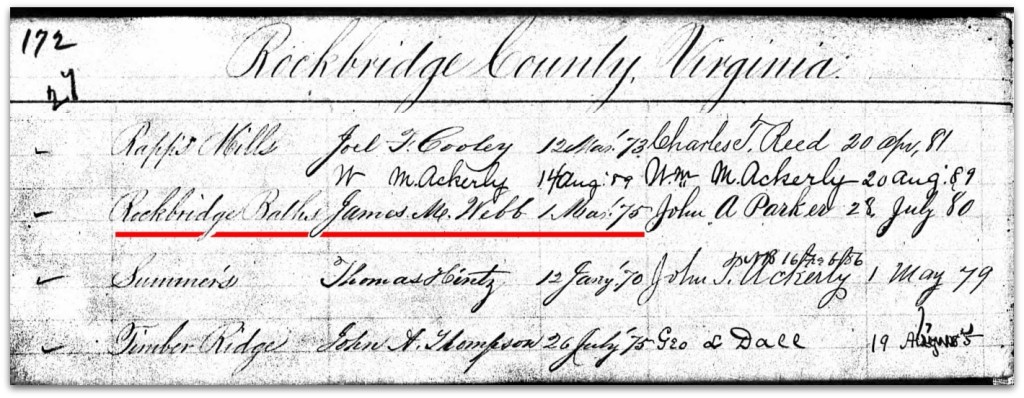 172
27
Rockbridge County, Virginia
Rapp's Mills Joel F. Cooley 12 Mar. '73 Charles T. Reed 20 Apr, 81
W M. Ackerly 14 Aug: 89 Wm M. Ackerly 20 aug: 89
Rockbridge Baths James M. Webb 1 Mar. '75 John A Parker 28 July 80
16 86
Summers Thomas Hintz 12 Jany. '70 John T. Ackerly 1 May 79
Timber Ridge John A. Thompson 26 July '75 Geo L Dall 19